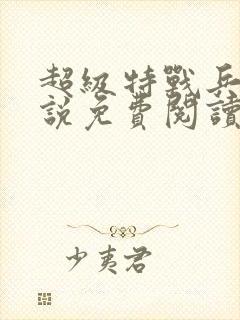 超級特戰兵
說免費閱讀
少夷君